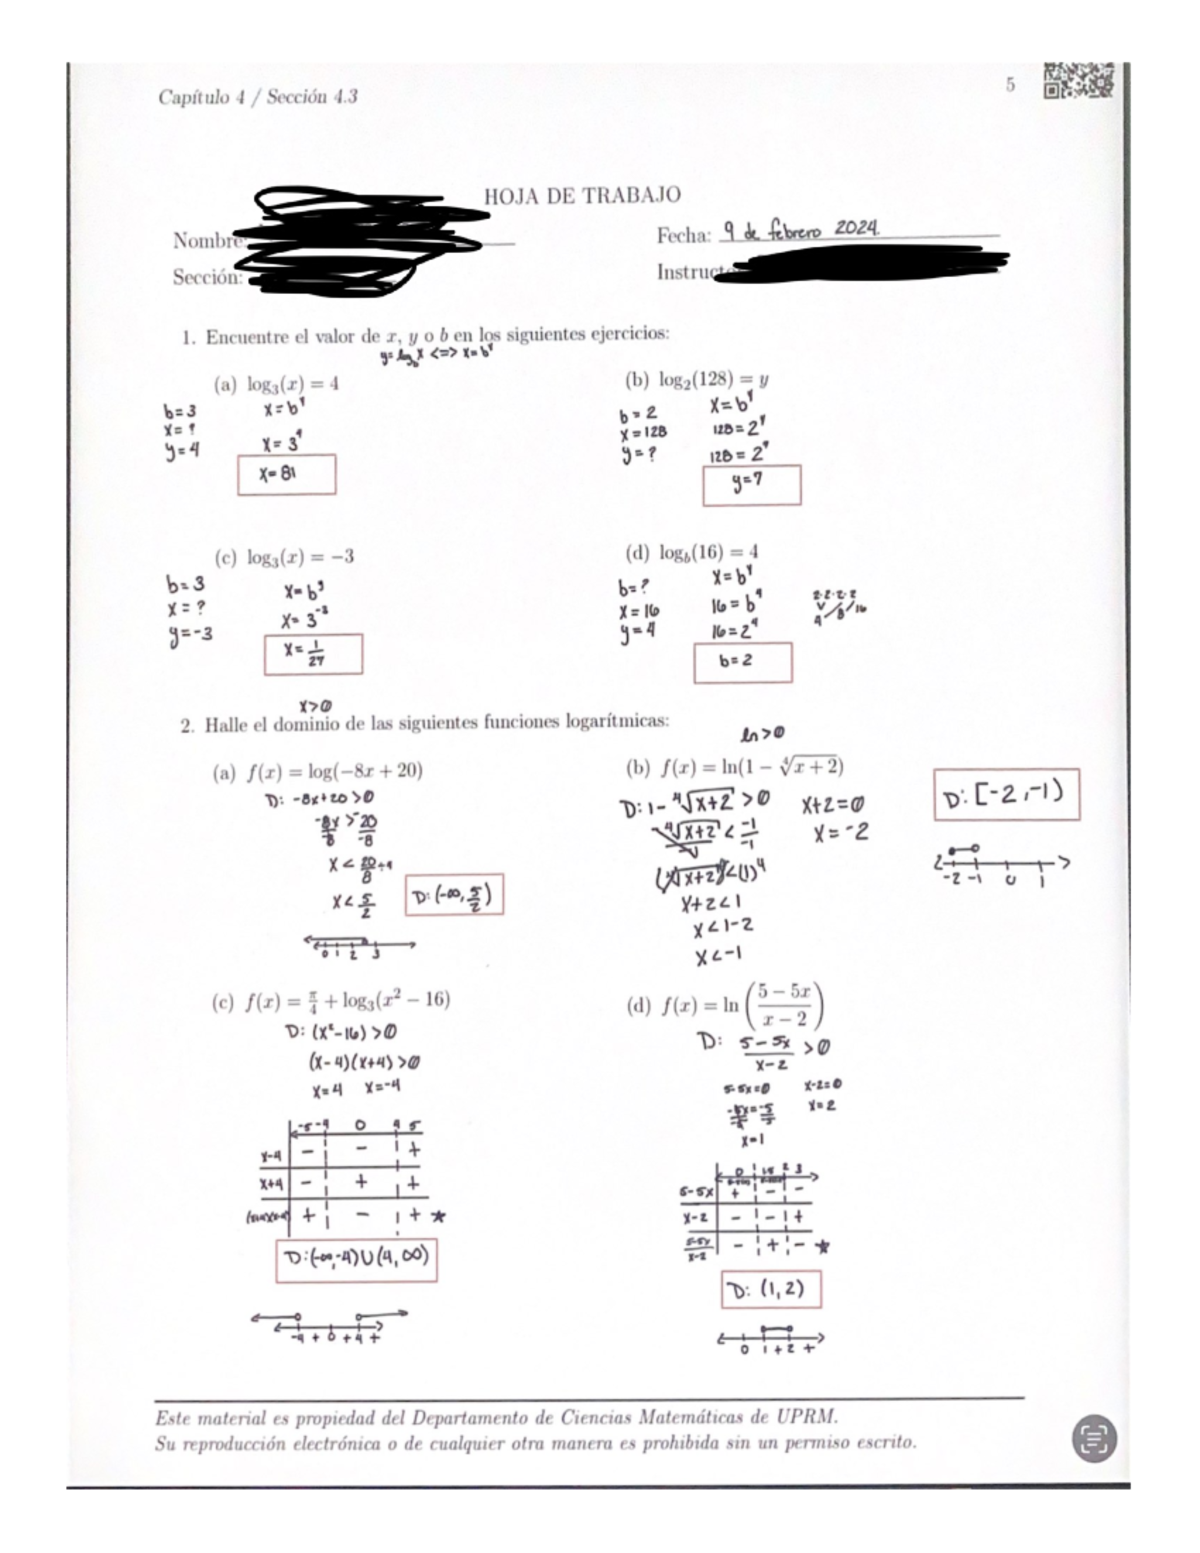 Capítulo 4 / Sección 4.3
5
HOJA DE TRABAJO
Nombre:
Fecha: 9 de febrero 2024.
Sección:
1. Encuentre el valor de x, y o b en los siguientes ejercicios:
y = log_b x <=> x = b^y
(a) log₃(x) = 4
b = 3
x = ?
y = 4
x = b^y
x = 3⁴
x = 81
(b) log₂(128) = y
b = 2
x = 128
y = ?
x = b^y
128 = 2^y
128 = 2⁷
y = 7
(c) log₃(x) = −3
b = 3
x = ?
y = -3
x = b^y
x = 3⁻³
x = 1/27
(d) log_b(16) = 4
b = ?
x = 16
y = 4
x = b^y
16 = b⁴
16 = 2⁴
b = 2
2·2·2·2
4 / 8 / 16
x > 0
2. Halle el dominio de las siguientes funciones logarítmicas:
ln > 0
(a) f(x) = log(−8x + 20)
D: -8x + 20 > 0
-8x/-8 > -20/-8
x < 20/8 ÷4
x < 5/2
D: (-∞, 5/2)
0 1 2 3
(b) f(x) = ln(1 − ∜(x + 2))
D: 1 - ∜(x+2) > 0
-∜(x+2)/-1 < -1/-1
(∜(x+2))⁴ < (1)⁴
x + 2 < 1
x < 1 - 2
x < -1
x + 2 = 0
x = -2
D: [-2, -1)
-2 -1 0 1
(c) f(x) = π/4 + log₃(x² − 16)
D: (x² - 16) > 0
(x - 4)(x + 4) > 0
x = 4 x = -4
-5 -4 0 4 5
x-4 - - +
x+4 - + +
+ - + *
D: (-∞, -4) U (4, ∞)
-4 + 0 + 4 +
(d) f(x) = ln((5 − 5x)/(x − 2))
D: (5 - 5x)/(x - 2) > 0
5 - 5x = 0
-5x/-5 = -5/-5
x = 1
x - 2 = 0
x = 2
0 1 1.5 2 3
5-5x + - -
x-2 - - +
(5-5x)/(x-2) - + - *
D: (1, 2)
0 1 + 2 +
Este material es propiedad del Departamento de Ciencias Matemáticas de UPRM.
Su reproducción electrónica o de cualquier otra manera es prohibida sin un permiso escrito.